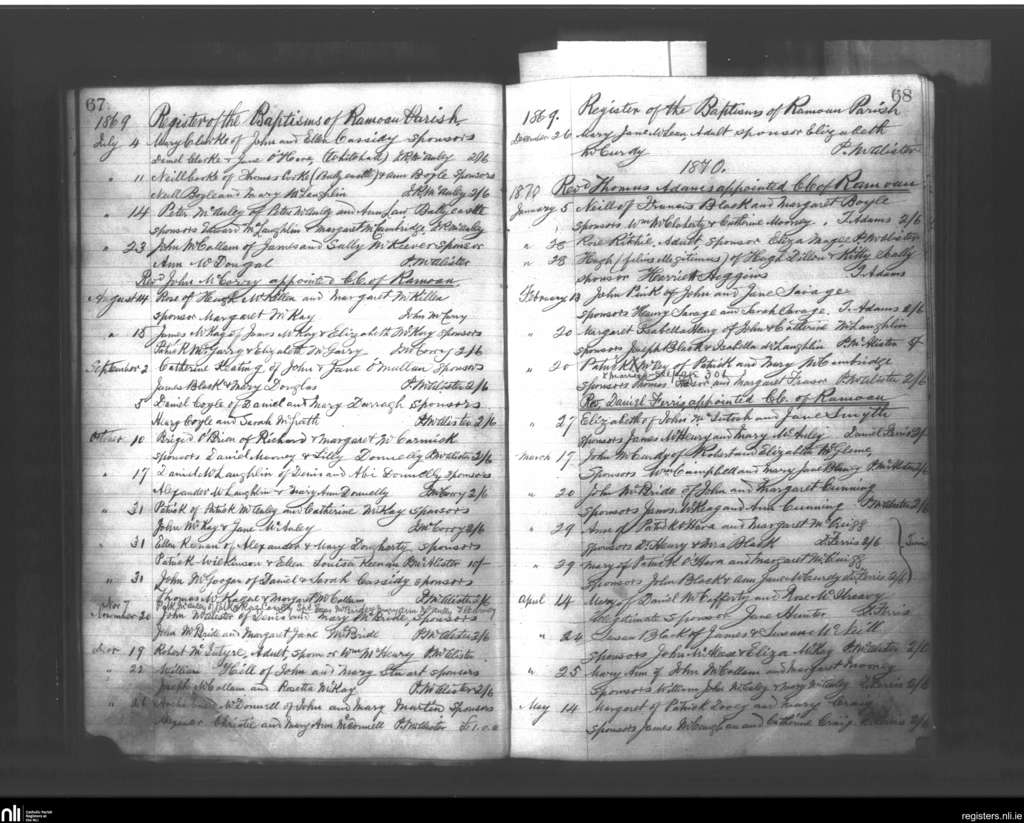 67
1869 Register of the Baptisms of Ramoan Parish
July 4 Mary Clarke of John and Ellen Cassidy Sponsors
Daniel Clarke & Jane O'Hara, (Whitehall) McAuley 2/6
" 11 Neill Cooke of Thomas Cooke (Ballycastle) & Ann Boyle Sponsors
Neill Boyle and Mary McLaughlin McAuley 2/6
" 14 Peter McAuley of Peter McAuley and Ann Law Ballycastle
Sponsors Edward McLaughlin & Margaret McCambridge McAuley
" 23 John McCollam of James and Sally McKeever Sponsor
Ann McDougal P. McAlister
Revd John McCorry appointed C.C. of Ramoan
August 14 Rose of Hugh McKillen and Margaret McKillen
Sponsor Margaret McKay John McCorry
" 15 James McKay of James McKay & Elizabeth McKay Sponsors
Patrick McGarry & Elizabeth McGarry J McCorry 2/6
September 2 Catherine Keating of John & Jane O'Mullan Sponsors
James Black & Mary Douglas P. McAlister 2/6
" 5 Daniel Coyle of Daniel and Mary Darragh Sponsors
Harry Coyle and Sarah McGrath P. McAlister 2/6
October 10 Brigid O'Brien of Richard & Margaret McCormick
Sponsors Daniel Mooney & Lilly Donnelly P. McAlister 2/6
" 17 Daniel McLaughlin of Denis and Abi Donnelly Sponsors
Alexander McLaughlin & Mary Ann Donnelly J McCorry 2/6
" 31 Patrick of Patrick McCauley and Catherine McKay Sponsors
John McKay & Jane McAuley J McCorry 2/6
" 31 Ellen Keenan of Alexander & Mary Dougherty Sponsors
Patrick Wilkinson & Ellen Louisa Keenan P. McAlister 10/-
" 31 John McGoogan of Daniel & Sarah Cassidy Sponsors
Thomas McKague & Margaret McCollam P. McAlister
Nov 7
November 20 John McAlister of Denis and Mary McBride Sponsors
John McBride and Margaret Jane McBride P. McAlister 2/6
19 Robert McIntyre, Adult, Sponsor Wm McHenry P. McAlister
" 22 William Hill of John and Mary Stuart Sponsors
Joseph McCollam and Rosetta McKay P. McAlister 2/6
" 26 McDonnell of John and Mary Martin Sponsors
Christie and Mary Ann McDonnell P. McAlister £1.0.0
68
1869. Register of the Baptisms of Ramoan Parish
December 26 Mary Jane McLean, Adult Sponsor Elizabeth
McCurdy P. McAlister
1870.
1870 Revd Thomas Adams appointed C.C. of Ramoan
January 5 Neill of Francis Black and Margaret Boyle
Sponsors Wm McClarty & Catherine Mooney. T. Adams 2/6
" 28 Rose Ritchie, Adult, Sponsor Eliza Magee P. McAlister
" 28 Hugh (filius illegitimus) of Hugh Dillon & Kitty Scally
Sponsor Harriet Higgins T. Adams
February 13 John Pink of John and Jane Savage
Sponsors Henry Savage and Sarah Savage. T. Adams 2/6
" 20 Margaret Isabella Henry of John & Catherine McLaughlin
Sponsors Joseph Black & Isabella McLaughlin P. McAlister
" 20 Patrick of Patrick and Mary McCambridge
Sponsors Thomas Fraser and Margaret Fraser P. McAlister 2/6
Rev. Daniel Ferris appointed C.C. of Ramoan
" 27 Elizabeth of John McIntosh and Jane Smyth
Sponsors James McHenry and Mary McAuley Daniel Ferris
March 17 John McCurdy of Robert and Elizabeth McGlame,
Sponsors Wm Campbell and Mary Jane Henry P. McAlister 2/6
" 20 John McBride of John and Margaret Cunning
Sponsors James McKeag and Ann Cunning P. McAlister 2/6
" 29 Ann of Patrick O'Hara and Margaret McQuigg
Sponsors Dr. Henry & Mrs Black D. Ferris 2/6
" 29 Mary of Patrick O'Hara and Margaret McQuigg
Sponsors John Black & Ann Jane McCurdy D. Ferris 2/6
Twins
April 14 Mary of Daniel McCafferty and Rose McIlheavy
Illegitimate Sponsor Jane Hunter D. Ferris
" 24 Susan Black of James & Susan McNeill
Sponsors John McNeill & Eliza McKay P. McAlister 2/6
" 25 Mary Ann of John McCollam and Margaret Mooney
Sponsors William John McCauley & Mary McCauley D. Ferris 2/6
May 14 Margaret of Patrick Dooey and Mary Craig
Sponsors James McCaughan and Catherine Craig D. Ferris 2/6
nli
Catholic Parish
Registers at
the NLI
registers.nli.ie